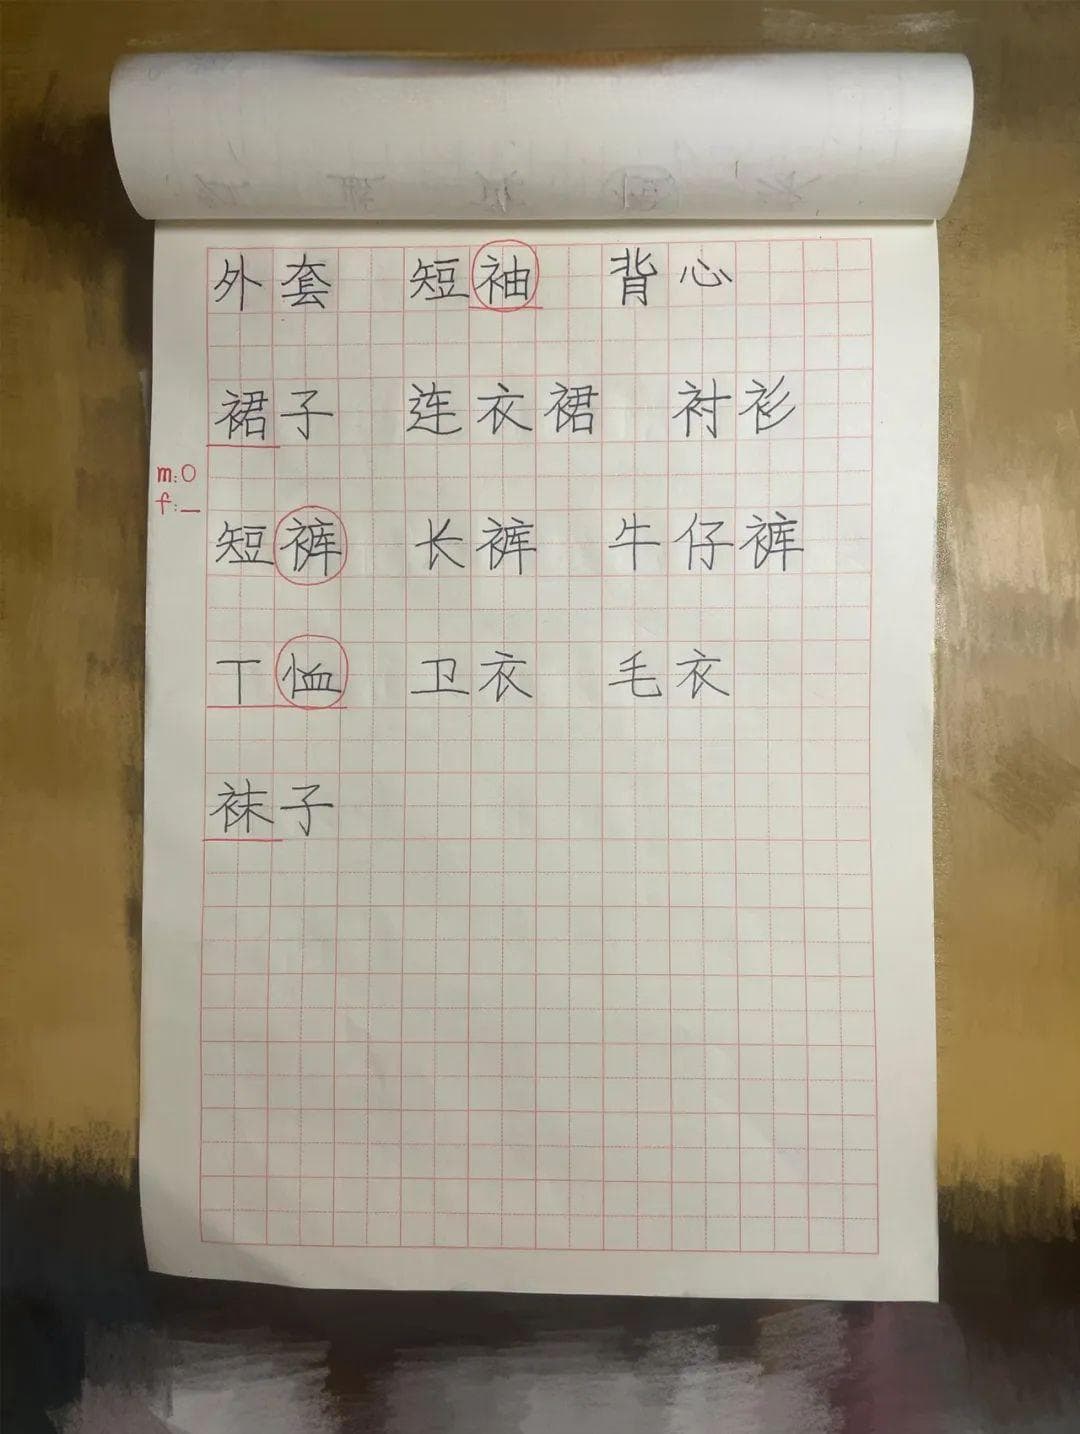 外套 短袖 背心
裙子 连衣裙 衬衫
m:O
f:_
短裤 长裤 牛仔裤
T恤 卫衣 毛衣
袜子